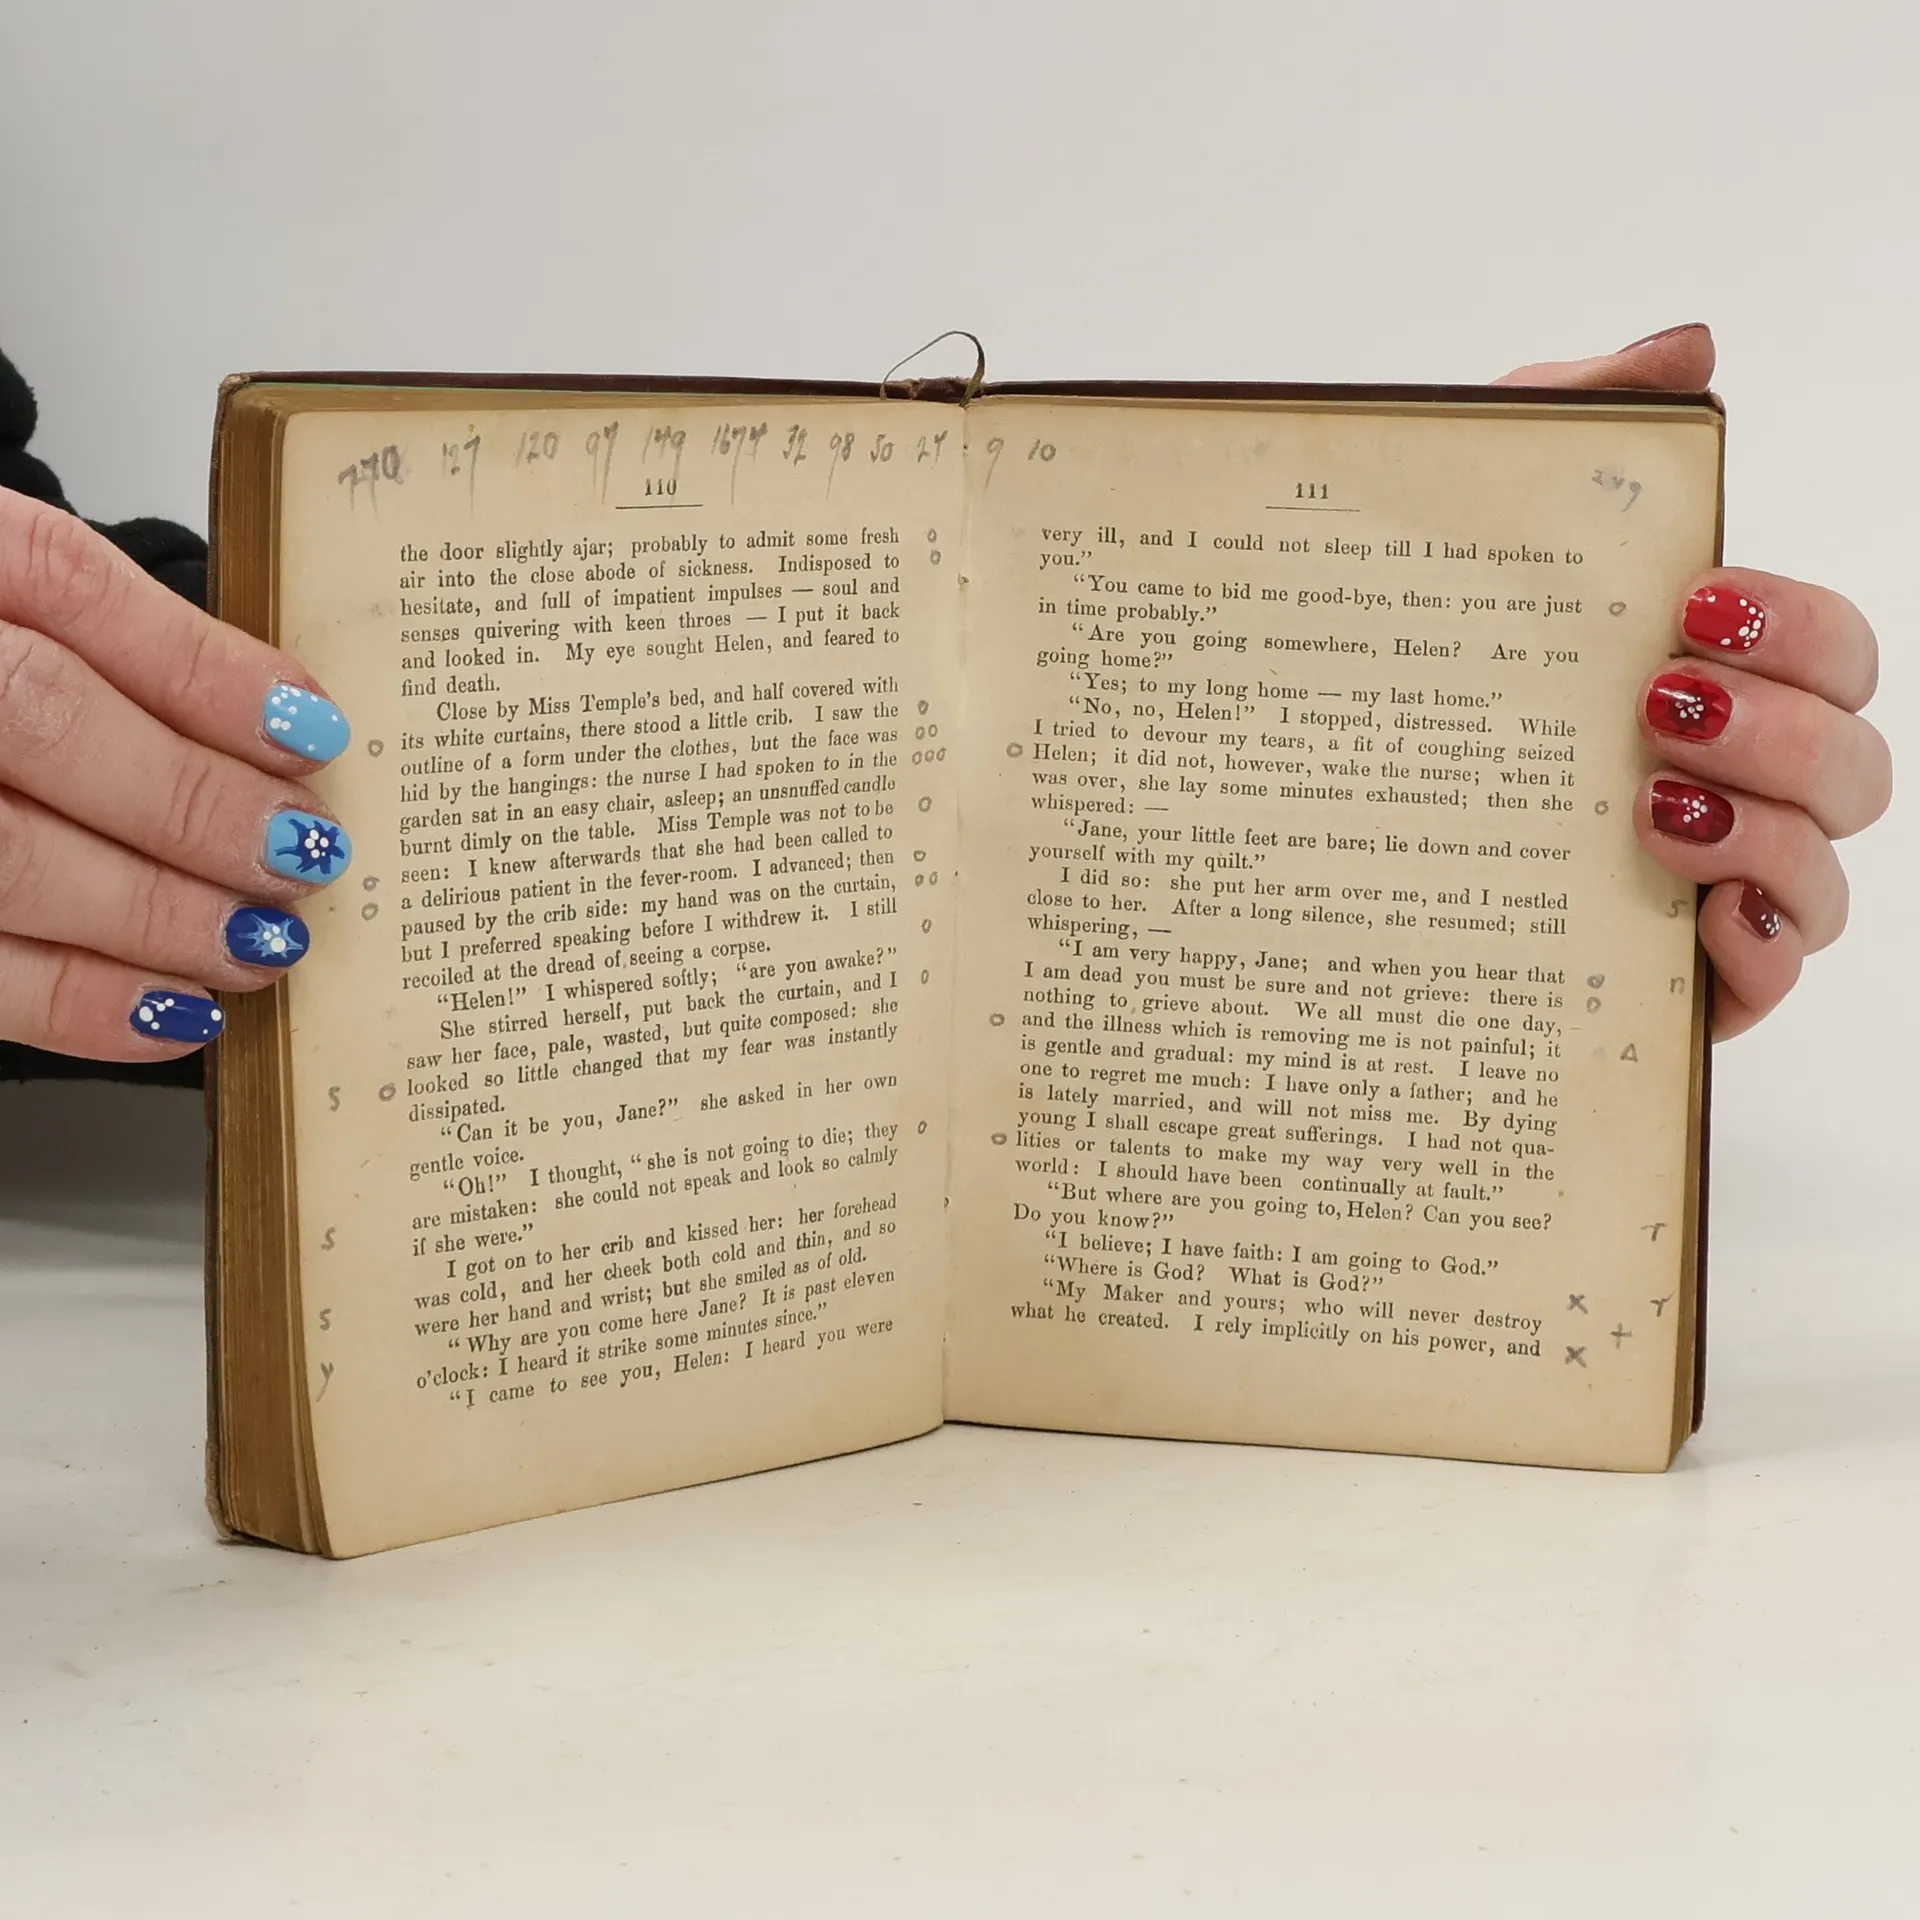 770 127 120 97 149 1674 32 98 50 27 · 9 10
110
the door slightly ajar; probably to admit some fresh
air into the close abode of sickness. Indisposed to
hesitate, and full of impatient impulses — soul and
senses quivering with keen throes — I put it back
and looked in. My eye sought Helen, and feared to
find death.
Close by Miss Temple's bed, and half covered with
its white curtains, there stood a little crib. I saw the
outline of a form under the clothes, but the face was
hid by the hangings: the nurse I had spoken to in the
garden sat in an easy chair, asleep; an unsnuffed candle
burnt dimly on the table. Miss Temple was not to be
seen: I knew afterwards that she had been called to
a delirious patient in the fever-room. I advanced; then
paused by the crib side: my hand was on the curtain,
but I preferred speaking before I withdrew it. I still
recoiled at the dread of seeing a corpse.
“Helen!” I whispered softly; “are you awake?”
She stirred herself, put back the curtain, and I
saw her face, pale, wasted, but quite composed: she
looked so little changed that my fear was instantly
dissipated.
“Can it be you, Jane?” she asked in her own
gentle voice.
“Oh!” I thought, “she is not going to die; they
are mistaken: she could not speak and look so calmly
if she were.”
I got on to her crib and kissed her: her forehead
was cold, and her cheek both cold and thin, and so
were her hand and wrist; but she smiled as of old.
“Why are you come here Jane? It is past eleven
o'clock: I heard it strike some minutes since.”
“I came to see you, Helen: I heard you were
s
s
s
y
249
111
very ill, and I could not sleep till I had spoken to
you.”
“You came to bid me good-bye, then: you are just
in time probably.”
“Are you going somewhere, Helen? Are you
going home?”
“Yes; to my long home — my last home.”
“No, no, Helen!” I stopped, distressed. While
I tried to devour my tears, a fit of coughing seized
Helen; it did not, however, wake the nurse; when it
was over, she lay some minutes exhausted; then she
whispered: —
“Jane, your little feet are bare; lie down and cover
yourself with my quilt.”
I did so: she put her arm over me, and I nestled
close to her. After a long silence, she resumed; still
whispering, —
“I am very happy, Jane; and when you hear that
I am dead you must be sure and not grieve: there is
nothing to grieve about. We all must die one day,
and the illness which is removing me is not painful; it
is gentle and gradual: my mind is at rest. I leave no
one to regret me much: I have only a father; and he
is lately married, and will not miss me. By dying
young I shall escape great sufferings. I had not qua-
lities or talents to make my way very well in the
world: I should have been continually at fault.”
“But where are you going to, Helen? Can you see?
Do you know?”
“I believe; I have faith: I am going to God.”
“Where is God? What is God?”
“My Maker and yours; who will never destroy
what he created. I rely implicitly on his power, and
s
n
r
r